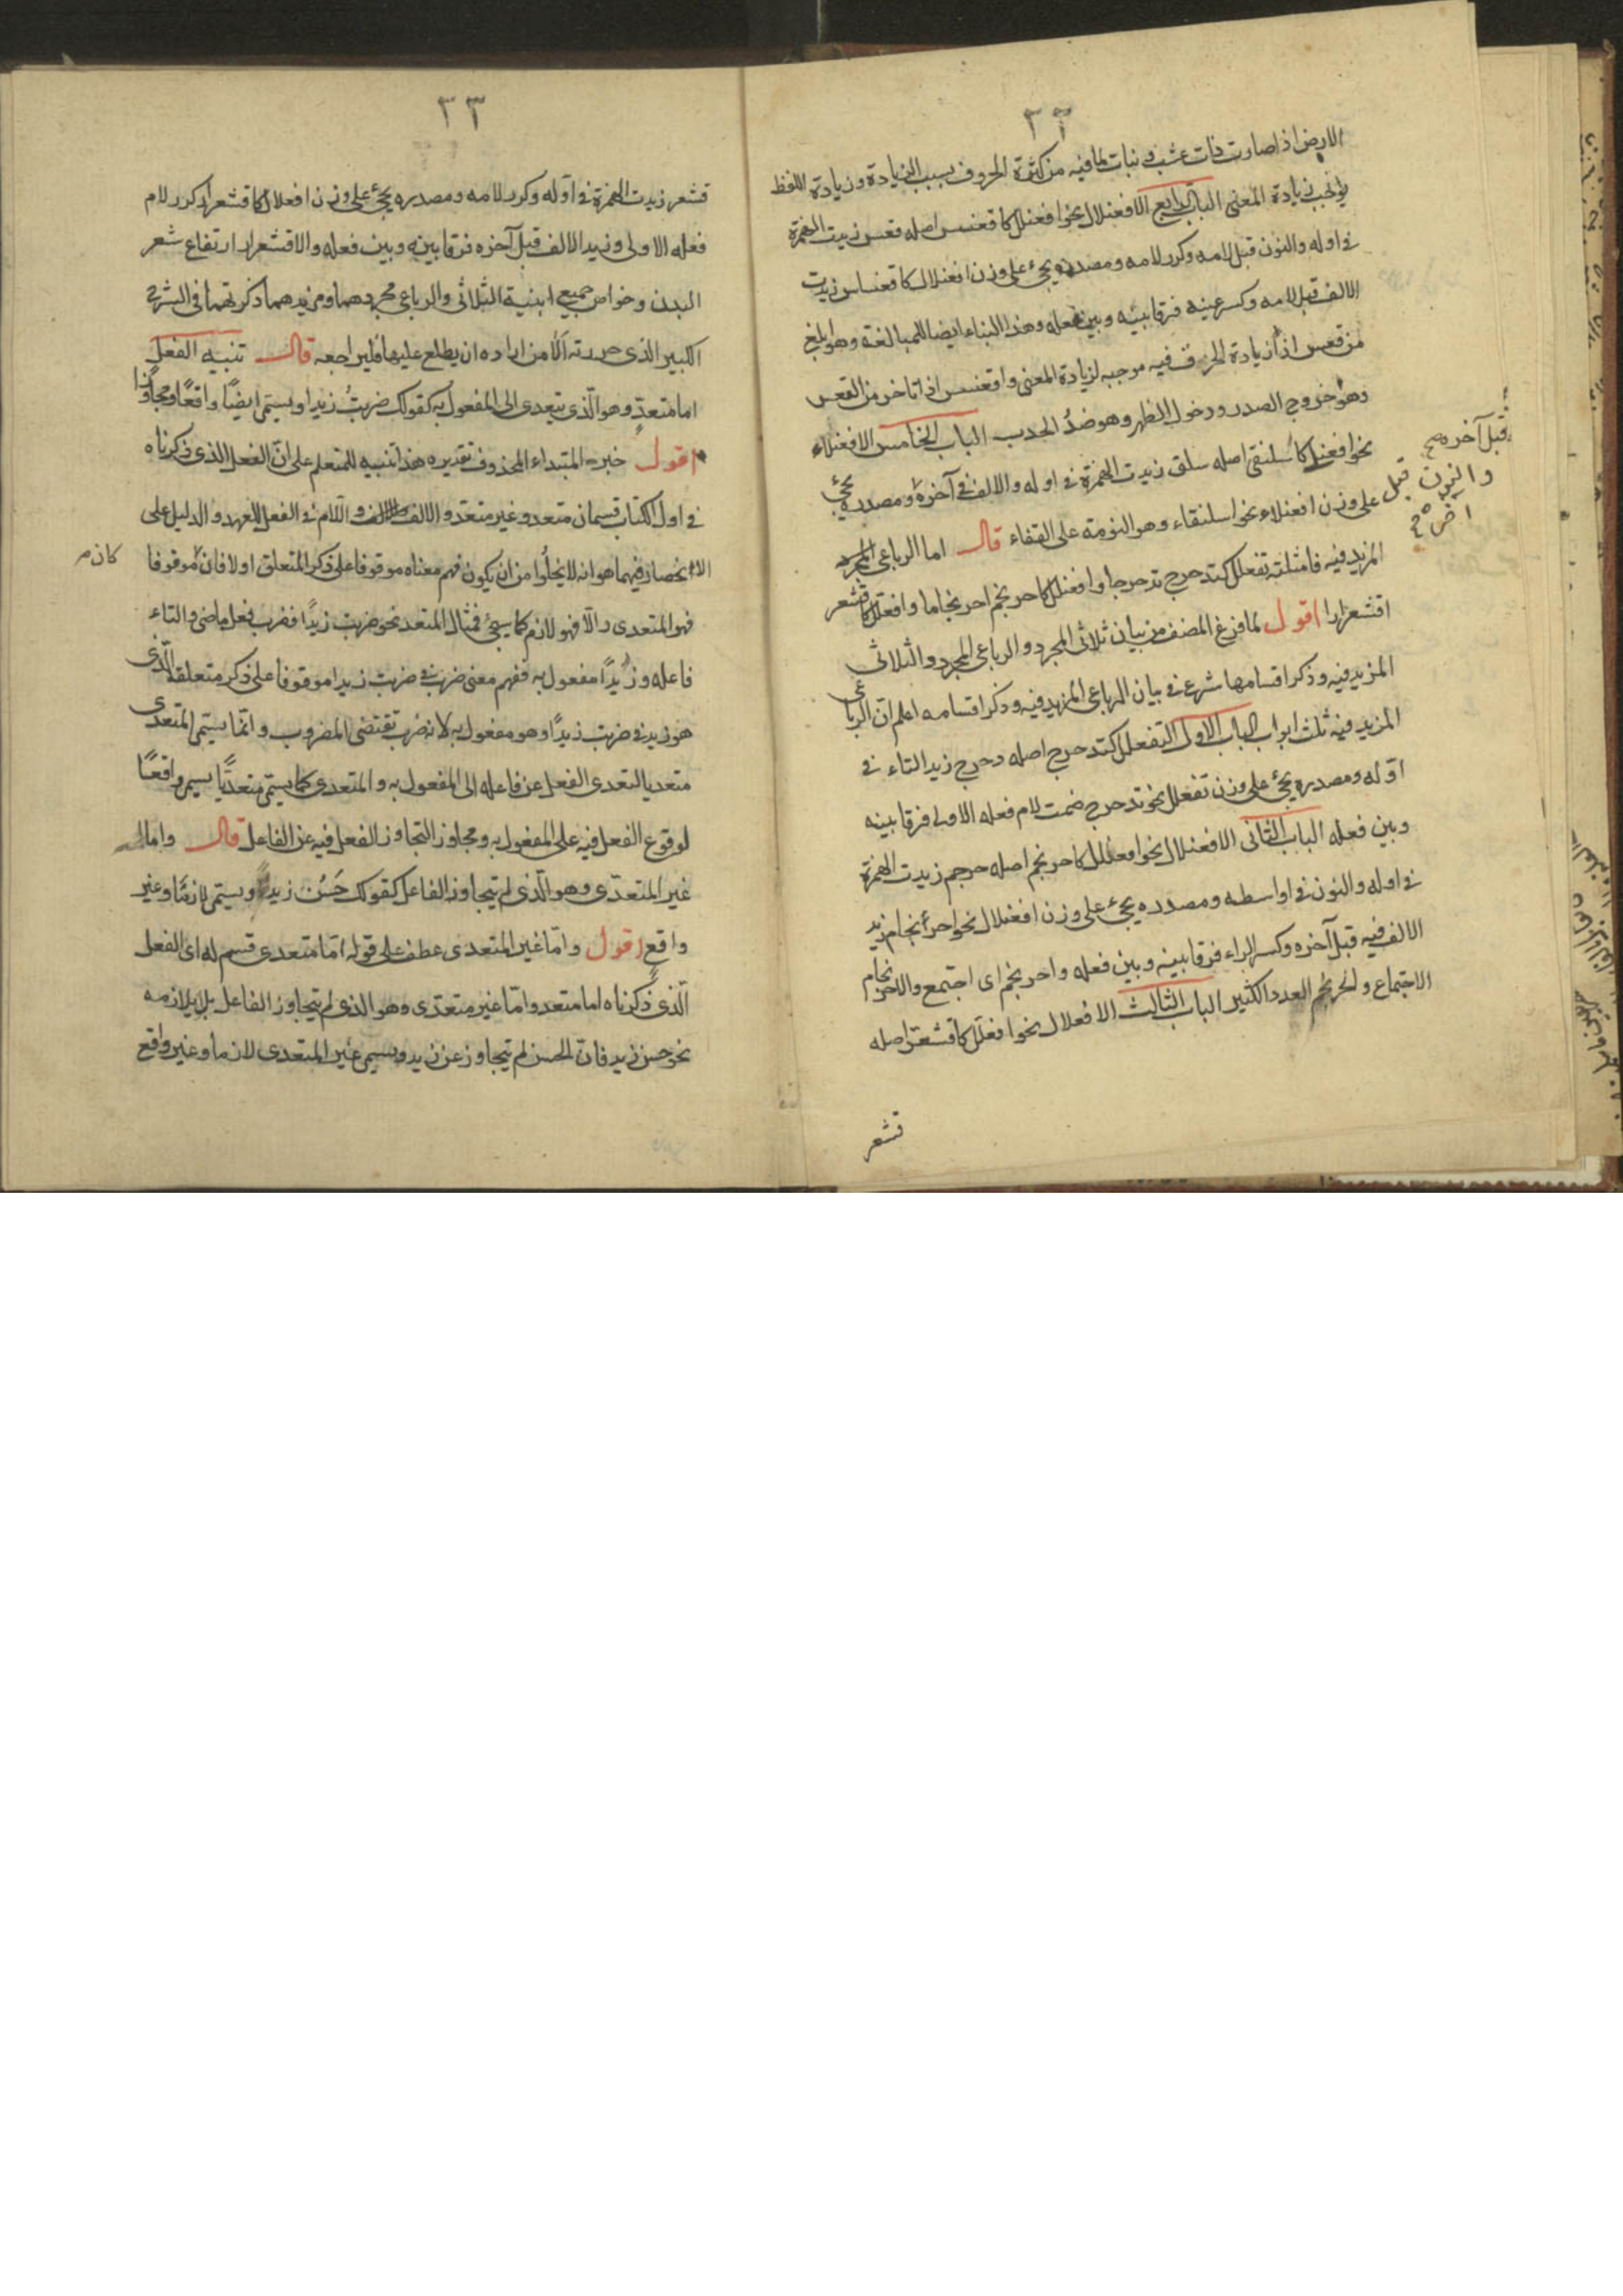 ٣٢
الارض اذا صارت ذات عشب و نبات لما فيه من كثرة الحروف بسبب الزيادة وزيادة اللفظ
يوجب زيادة المعنى الباب الرابع الافعنلال نحو افعنلل كاقعنسس اصله قعس زيدت الهمزة
فى اوله والنون قبل لامه وكرر لامه ومصدره يجئ على وزن افعنلال كاقعنساس زيدت
الالف قبل لامه وكسر عينه فرقا بينه وبين فعله وهذا البناء ايضا للمبالغة وهو ابلغ
من قعس اذ ازيادة الحرف فيه موجبه لزيادة المعنى واقعنسس اذا تاخر من القعس
وهو خروج الصدر ودخول الظهر وهو ضد الحدب الباب الخامس الافعنلاء
نحو افعنلى كاسلنقى اصله سلق زيدت الهمزة فى اوله والالف فى آخره ومصدره يجئ
على وزن افعنلاء نحو اسلنقاء وهو النومة على القفاء قال اما الرباعى
المزيد فيه فامثلته تفعلل كتدحرج تدحرجا وافعنلل كاحرنجم احرنجاما وافعلل كاقشعر
اقشعرارا اقول لما فرغ المصنف من بيان ثلاثى المجرد والرباعى المجرد والثلاثى
المزيد فيه وذكر اقسامها شرع فى بيان الرباعى المزيد فيه وذكر اقسامه اعلم ان الرباعى
المزيد فيه ثلث ابواب الباب الاول التفعلل كتدحرج اصله دحرج زيد التاء فى
اوله ومصدره يجئ على وزن تفعلل نحو تدحرج ضمت لام فعله الاولى فرقا بينه
وبين فعله الباب الثانى الافعنلال نحو افعنلل كاحرنجم اصله حرجم زيدت الهمزة
فى اوله والنون فى اواسطه ومصدره يجئ على وزن افعنلال نحو احرنجام زيد
الالف فيه قبل آخره وكسر الراء فرقا بينه وبين فعله واحرنجم اى اجتمع والاحرنجام
الاجتماع والحرنجم العدد الكثير الباب الثالث الافعلال نحو افعلل كاقشعر اصله
قشعر
قبل آخره صح
والنون قبل
٣٣
قشعر زيدت الهمزة فى اوله وكرر لامه ومصدره يجئ على وزن افعلال كاقشعرار كرر لام
فعله الاولى وزيد الالف قبل آخره فرقا بينه وبين فعله والاقشعرار ارتفاع شعر
البدن وخواص جميع ابنية الثلاثى والرباعى مجردهما ومزيدهما ذكرتهما فى الشرح
الكبير الذى حررته الا من اراده ان يطلع عليها فليراجعه قال تنبيه الفعل
اما متعد وهو الذى يتعدى الى المفعول به كقولك ضربت زيدا ويسمى ايضا واقعا ومجاوزا
اقول خبر المبتداء المحذوف تقديره هذا تنبيه للمتعلم على ان الفعل الذى ذكرناه
فى اول الكتاب قسمان متعد وغير متعد والالف واللام فى الفعل للعهد والدليل على
الانحصار فيهما هو انه لا يخلوا من ان يكون فهم معناه موقوفا على ذكر المتعلق اولا فان موقوفا
كان
فهو المتعدى والا فهو لازم كما سيجئ فمثال المتعد نحو ضربت زيدا فضرب فعل ماضى والتاء
فاعله وزيدا مفعول به ففهم معنى ضرب فى ضربت زيدا موقوفا على ذكر متعلقه الذى
هو زيد فى ضربت زيدا وهو مفعول به لانه ضرب تقتضى المضروب وانما يسمى المتعدى
متعديا لتعدى الفعل عن فاعله الى المفعول به والمتعدى كما يسمى متعديا يسمى واقعا
لوقوع الفعل فيه على المفعول به ومجاوز التجاوز الفعل فيه عن الفاعل قال واما
غير المتعدى وهو الذى لم يتجاوز الفاعل كقولك حسن زيد ويسمى لازما وغير
واقع اقول واما غير المتعدى عطف على قوله اما متعدى قسم له اى الفعل
الذى ذكرناه اما متعد واما غير متعدى وهو الذى لم يتجاوز الفاعل بل يلازمه
نحو حسن زيد فان الحسن لم يتجاوز عن زيد ويسمى غير المتعدى لازما وغير واقع